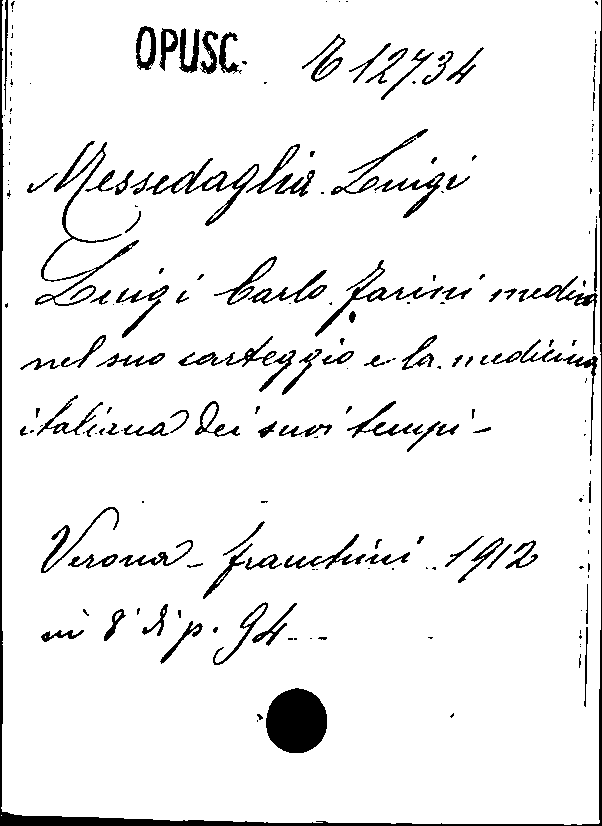 OPUSC. E 12734
Messedaglia Luigi
Luigi Carlo Farini medico
nel suo carteggio e la medicina
italiana dei suoi tempi -
Verona - Franchini 1912
in 8° di p. 94 - -